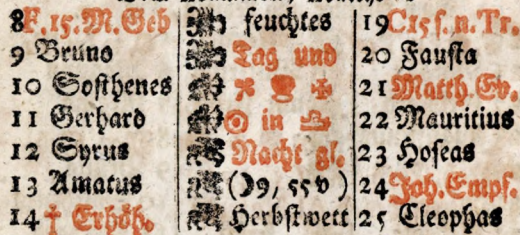 8 F. 15. M. Geb feuchtes 19 C 15 ſ. n. Tr.
9 Bruno Tag und 20 Fauſta
10 Soſthenes 21 Matth. Ev.
11 Gerhard ☉ in ♎ 22 Mauritius
12 Syrus Nacht gl. 23 Hoſeas
13 Amatus (☽9, 55 v) 24 Joh. Empf.
14 † Erhöh. Herbſtwett 25 Cleophas